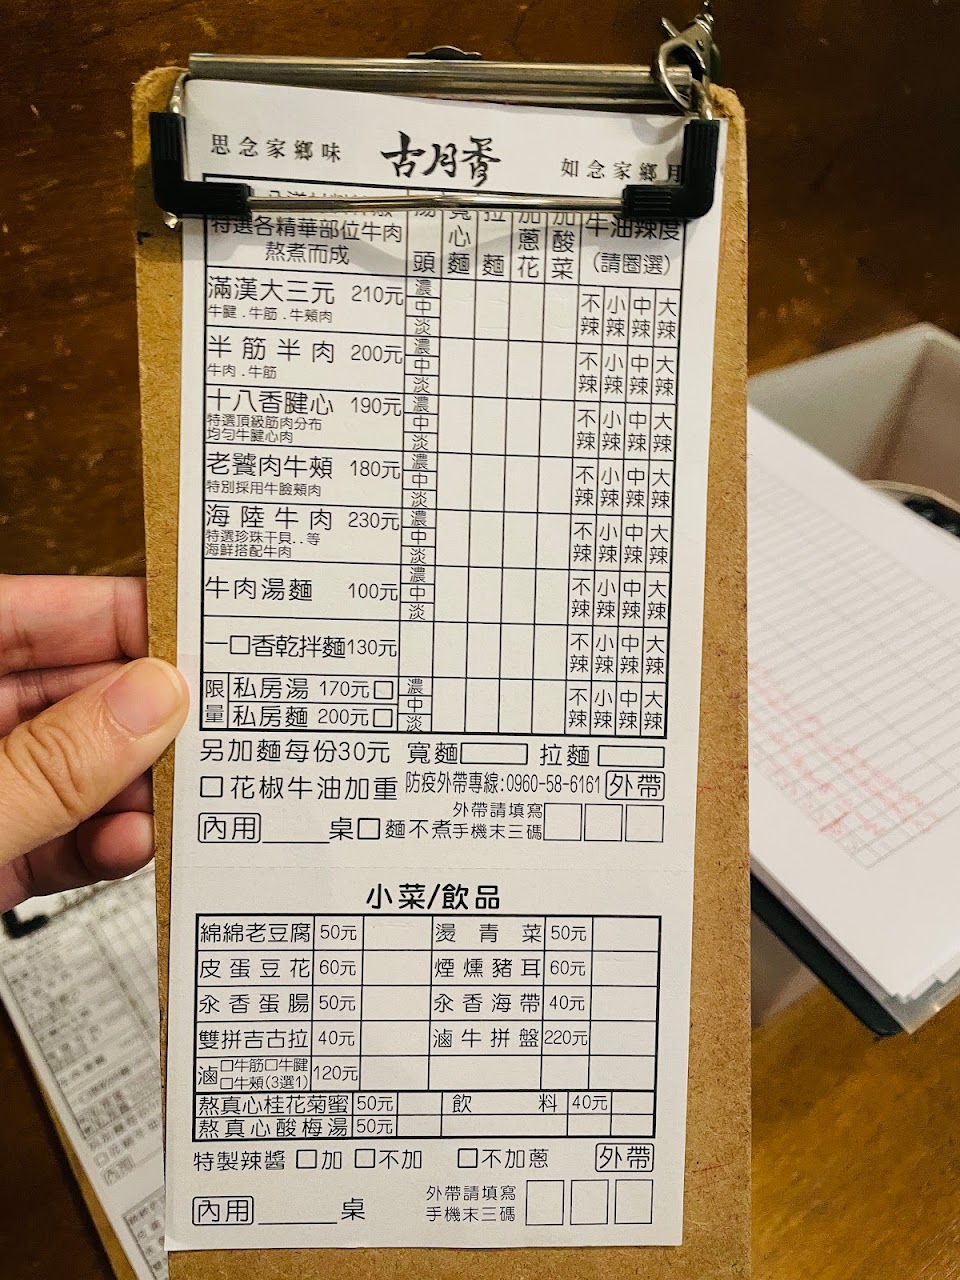 思念家鄉味
古月香
如念家鄉月
特選各精華部位牛肉
熬煮而成
湯頭 寬心麵 拉麵 加蔥花 加酸菜 牛油辣度
(請圈選)
滿漢大三元 210元 濃 中 淡 不辣 小辣 中辣 大辣
牛腱.牛筋.牛頰肉
半筋半肉 200元 濃 中 淡 不辣 小辣 中辣 大辣
牛肉.牛筋
十八香腱心 190元 濃 中 淡 不辣 小辣 中辣 大辣
特選頂級筋肉分布
均勻牛腱心肉
老饕肉牛頰 180元 濃 中 淡 不辣 小辣 中辣 大辣
特別採用牛臉頰肉
海陸牛肉 230元 濃 中 淡 不辣 小辣 中辣 大辣
特選珍珠干貝..等
海鮮搭配牛肉
牛肉湯麵 100元 濃 中 淡 不辣 小辣 中辣 大辣
一口香乾拌麵130元 不辣 小辣 中辣 大辣
限量 私房湯 170元□ 濃 中 淡 不辣 小辣 中辣 大辣
私房麵 200元□
另加麵每份30元 寬麵 拉麵
□花椒牛油加重 防疫外帶專線:0960-58-6161 外帶
內用 ____桌□麵不煮 外帶請填寫
手機末三碼
小菜/飲品
綿綿老豆腐 50元 燙青菜 50元
皮蛋豆花 60元 煙燻豬耳 60元
汆香蛋腸 50元 汆香海帶 40元
雙拼吉古拉 40元 滷牛拼盤 220元
滷 □牛筋□牛腱
□牛頰(3選1) 120元
熬真心桂花菊蜜 50元 飲料 40元
熬真心酸梅湯 50元
特製辣醬 □加 □不加 □不加蔥 外帶
內用 ____桌 外帶請填寫
手機末三碼